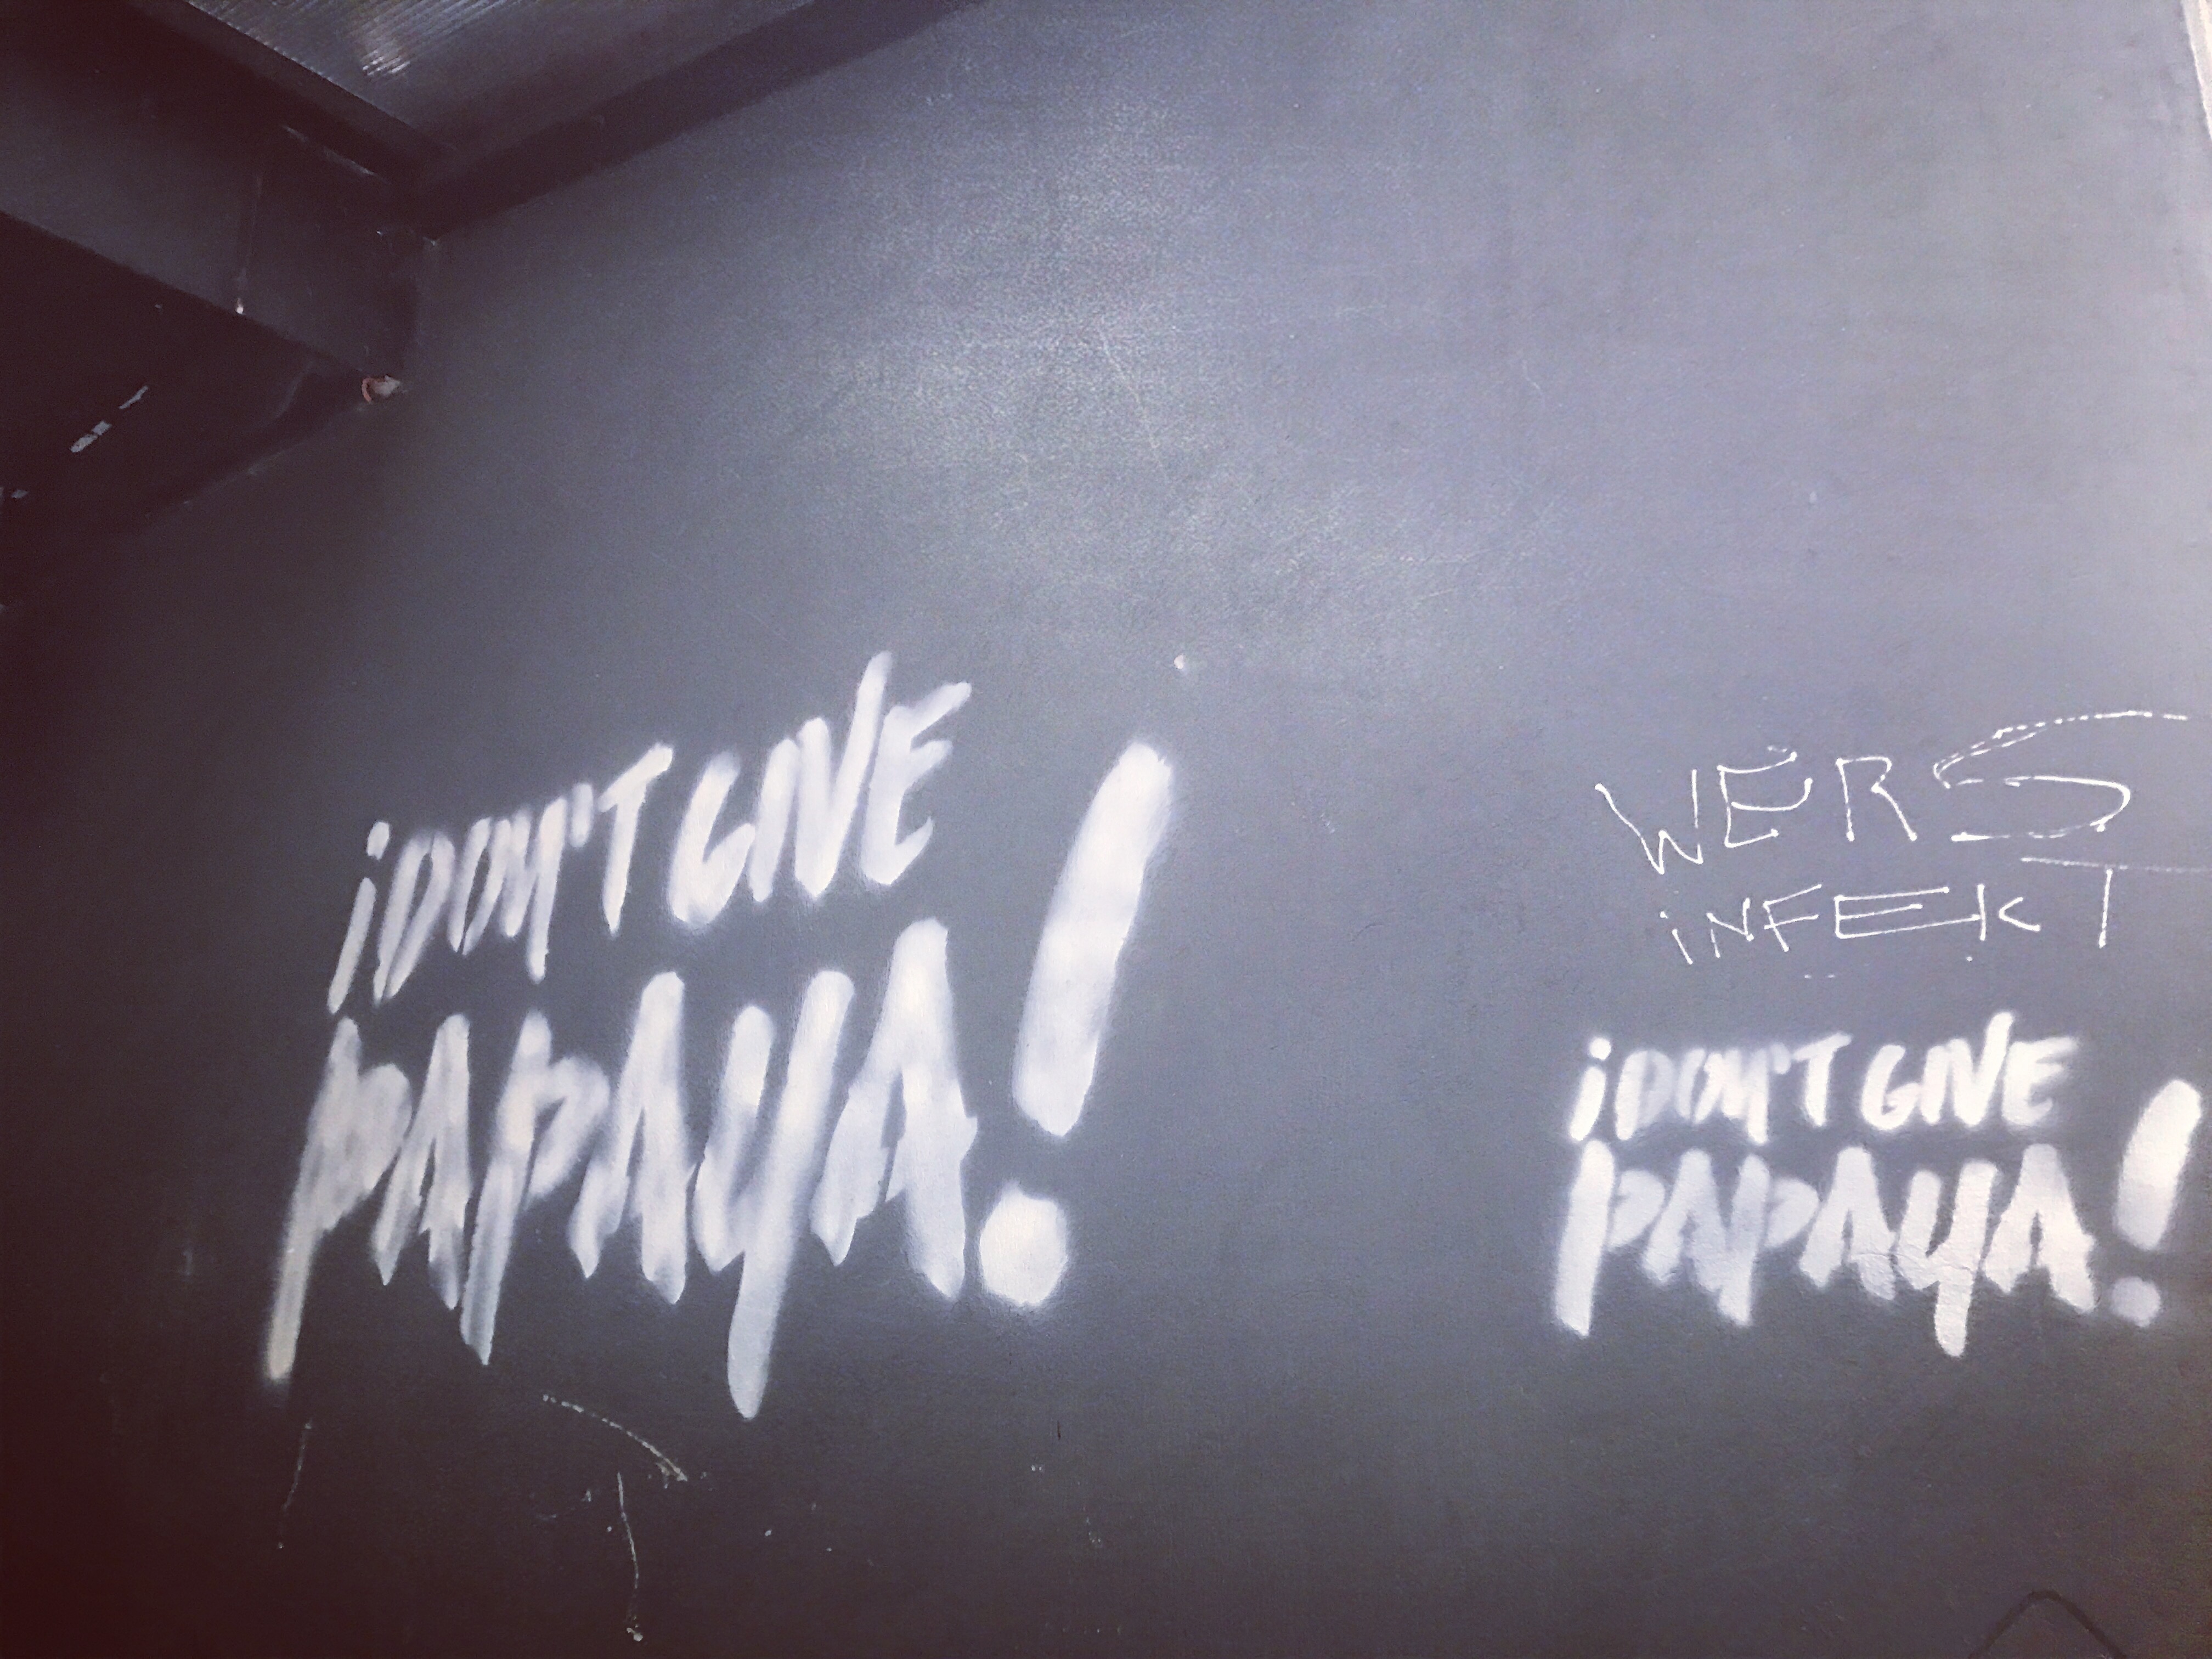 i DON'T GIVE
PAPAYA!
WERS
iNFEKT
i DON'T GIVE
PAPAYA!